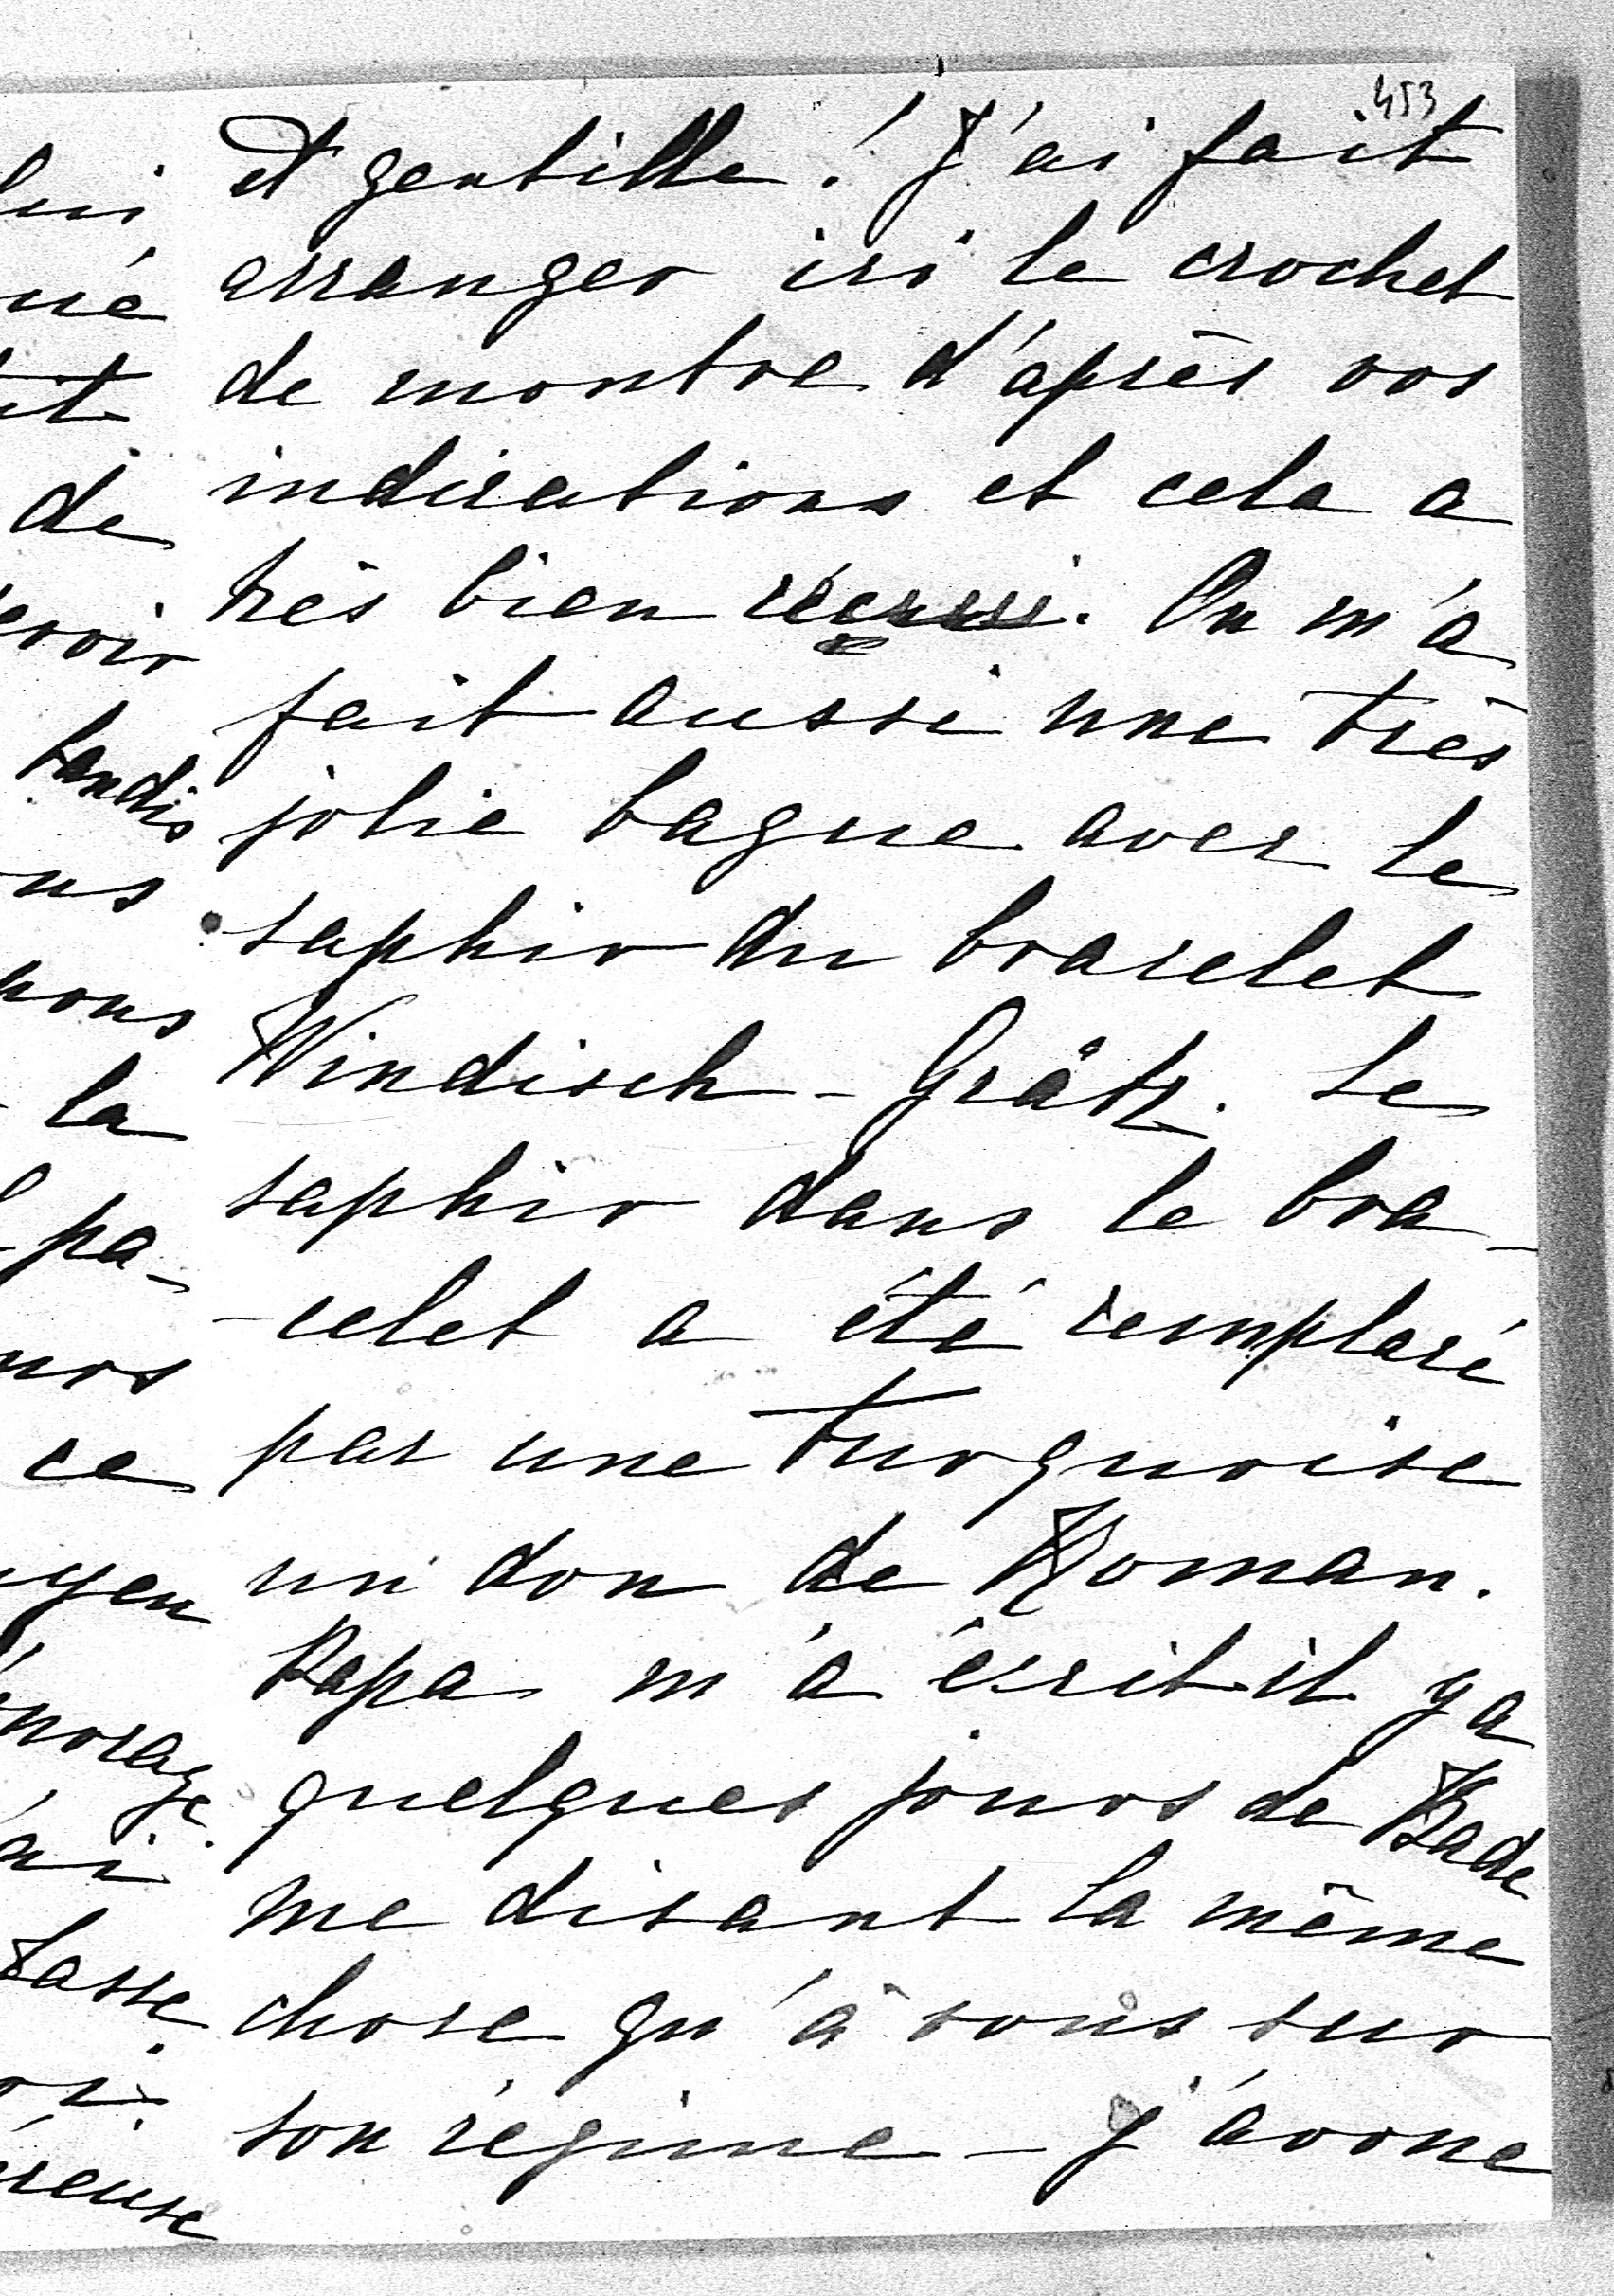 453
et gentille! J'ai fait
arranger ici le crochet
de montre d'après vos
indications et cela a
très bien réussi. On m'a
fait aussi une très
jolie bague avec le
saphir du bracelet
Windisch-Grätz. Le
saphir dans le bra-
-celet a été remplacé
par une turquoise
un don de Roman.
Papa m'a écrit il y a
quelques jours de Bade
me disant la même
chose qu'à vous sur
son régime – J'avoue
lui
né
de
tandis
nous
la
pa-
nos
ce
tasse